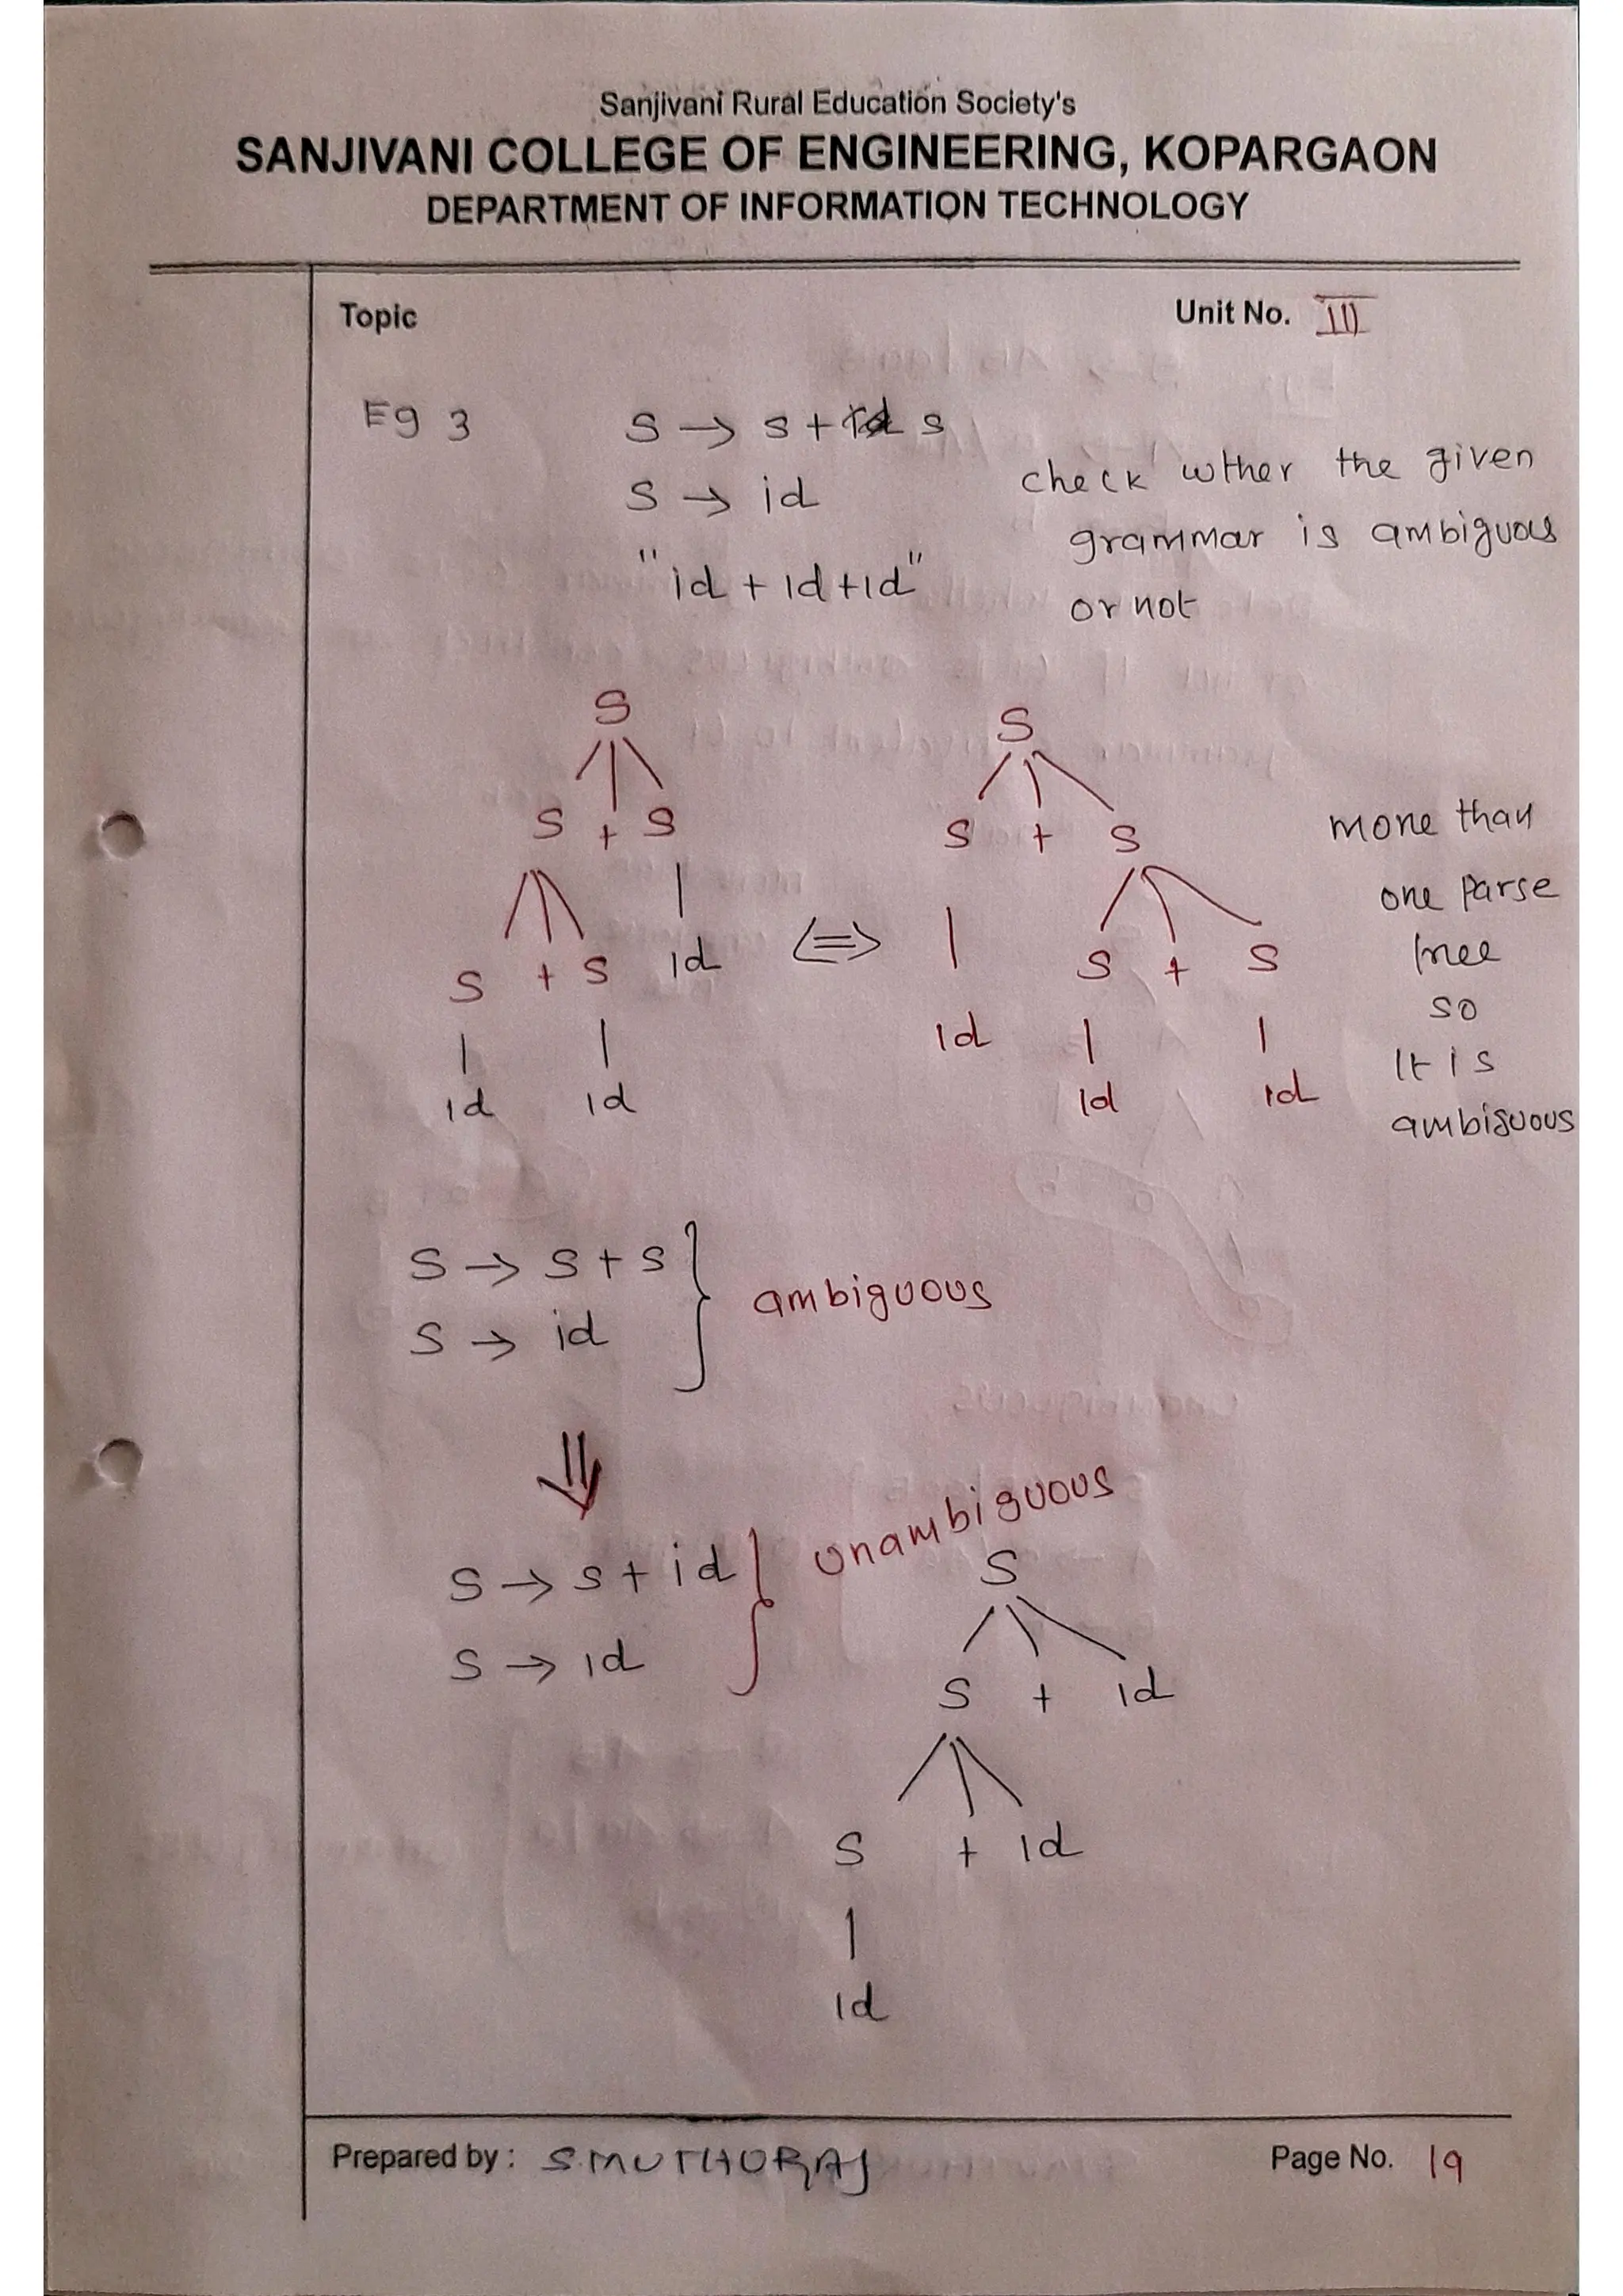 Sanjivani Rural Education Society's
SANJIVANI COLLEGE OF ENGINEERING, KOPARGAON
DEPARTMENT OF INFORMATION TECHNOLOGY
Topic
Unit No. III
Eg 3
S → S + S
S → id
"id + id + id"
check wther the given
grammar is ambiguous
or not
S
S + S
S + S id
id id
⇔
S
S + S
id S + S
id id
more than
one parse
tree
so
It is
ambiguous
S → S + S
S → id
ambiguous
⇓
S → S + id
S → id
unambiguous
S
S + id
S + id
id
Prepared by : S.MUTHURAJ
Page No. 19